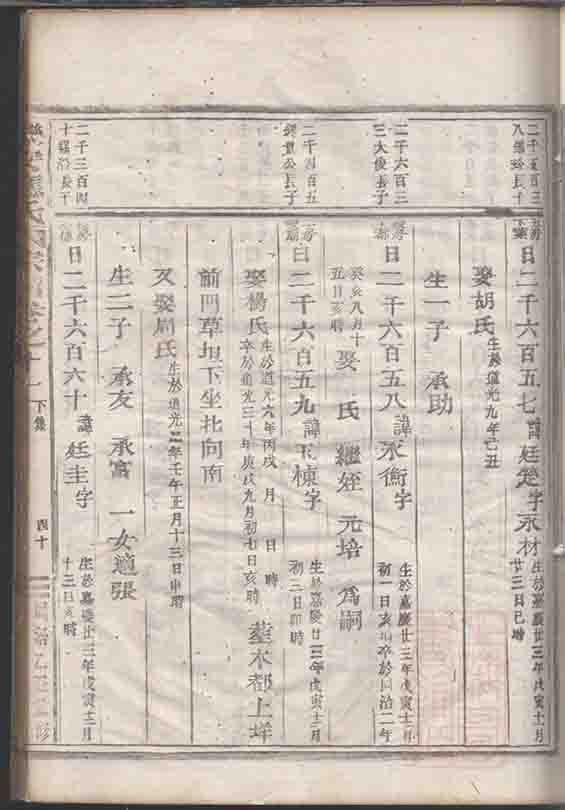 二千五百三
日二千六百五七諱廷楚字永材生於嘉慶廿三年戊寅十一月
廿三日巳時
娶胡氏生於道光九年己丑
生一子 承助
二千六百三
三大俊長子
日二千六百五八諱永衡字 生於嘉慶廿三年戊寅十二月
初一日亥時卒於同治二年
癸亥八月十
五日亥時娶 氏 繼姪 元培 為嗣
二千四百五
日二千六百五九諱 棟字 生於嘉慶廿三年戊寅十二月
初三日卯時
娶楊氏生於道光六年丙戌 月 日 時
卒於道光三十年庚戌九月初七日亥時 塟木都上垟
前門草垠下坐北向南
又娶周氏生於道光二年壬午正月十三日申時
生二子 承友 承富 一女適張
二千三百四
日二千六百六十諱廷圭字 生於嘉慶廿三年戊寅十二月
十三日亥時
下集
四十